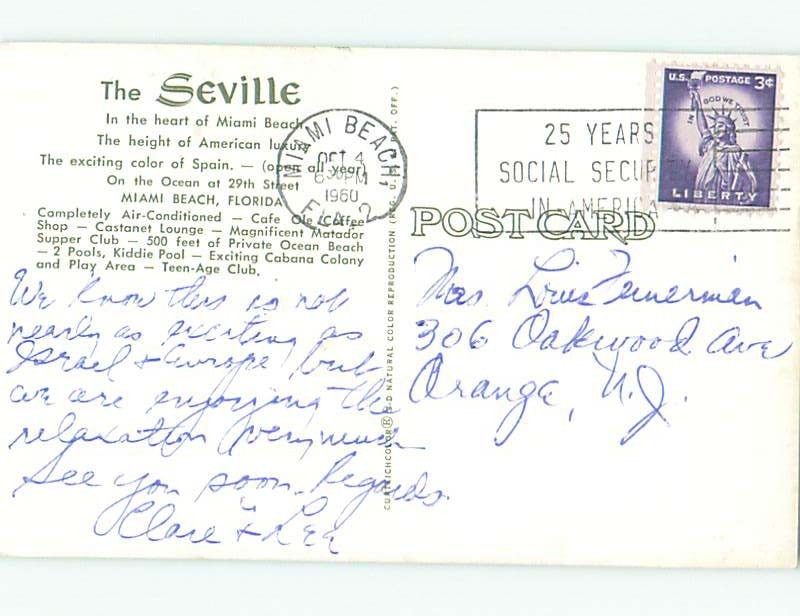 The Seville
In the heart of Miami Beach
The height of American luxury
The exciting color of Spain. — (open all year)
On the Ocean at 29th Street
MIAMI BEACH, FLORIDA
Completely Air-Conditioned — Cafe Ole Coffee
Shop — Castanet Lounge — Magnificent Matador
Supper Club — 500 feet of Private Ocean Beach
— 2 Pools, Kiddie Pool — Exciting Cabana Colony
and Play Area — Teen-Age Club.
We know this is not
nearly as exciting as
Israel & Europe, but
we are enjoying the
relaxation very much
See you soon. Regards.
Clare & Lee
CURTEICHCOLOR® 3-D NATURAL COLOR REPRODUCTION (REG. U.S.A. PAT. OFF.)
MIAMI BEACH,
OCT 4
PM
1960
FLA. 2
25 YEARS
SOCIAL SECURITY
IN AMERICA
U.S. POSTAGE 3¢
IN GOD WE TRUST
LIBERTY
POST CARD
Mrs. Louis
306 Oakwood Ave
Orange, N.J.